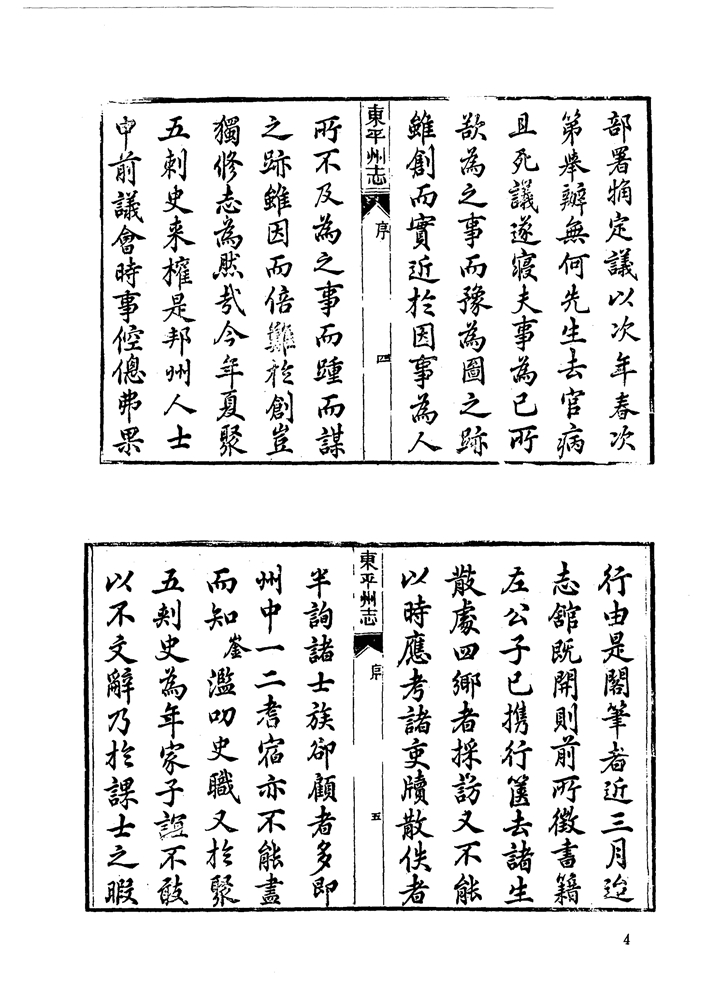 部署粗定議以次年春次
第舉辦無何先生去官病
且死議遂寢夫事為已所
欲為之事而豫為圖之跡
雖創而實近於因事為人
東平州志
序
四
所不及為之事而踵而謀
之跡雖因而倍難於創豈
獨修志為然哉今年夏聚
五刺史来權是邦州人士
申前議會時事倥傯弗果
行由是閣筆者近三月迨
志舘既開則前所徵書籍
左公子已携行篋去諸生
散處四鄉者採訪又不能
以時應考諸吏牘散佚者
東平州志
序
五
半詢諸士族卻顧者多即
州中一二耆宿亦不能盡
而知崟濫叨史職又於聚
五刾史為年家子誼不敢
以不文辭乃於課士之暇
4